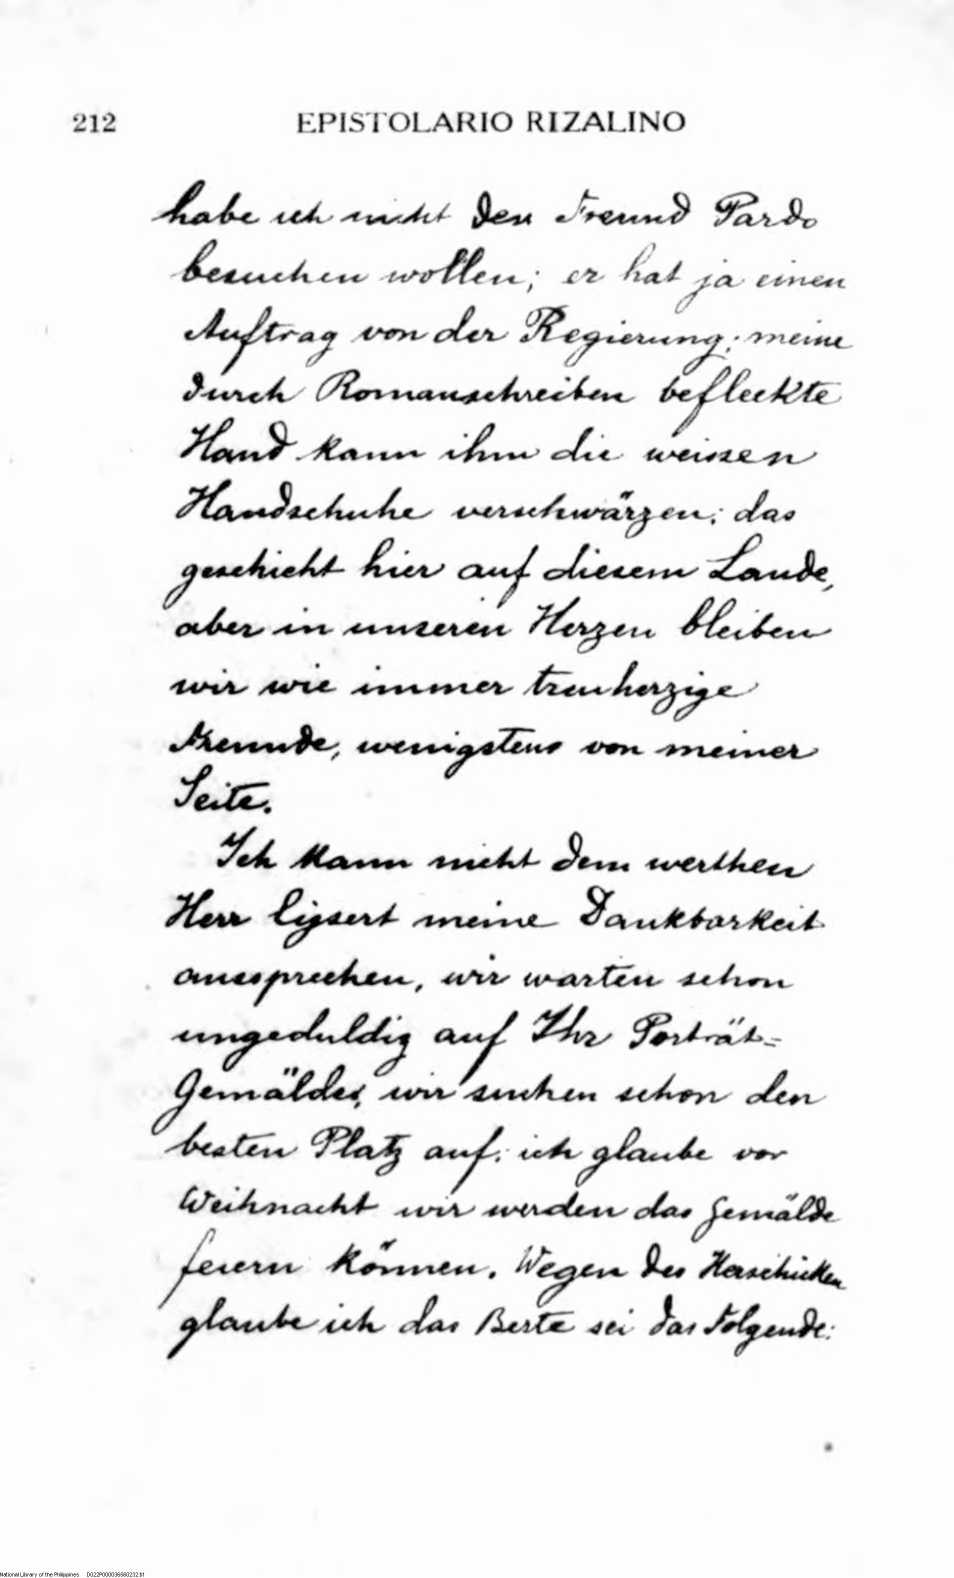 212
EPISTOLARIO RIZALINO
habe ich nicht den Freund Pardo
besuchen wollen; er hat ja einen
Auftrag von der Regierung; meine
durch Romanschreiben befleckte
Hand kann ihm die weissen
Handschuhe verschwärzen; das
geschieht hier auf diesem Lande,
aber in unseren Herzen bleiben
wir wie immer treuherzige
Freunde, wenigstens von meiner
Seite.
Ich kann nicht dem werthen
Herr meine Dankbarkeit
aussprechen, wir warten schon
ungeduldig auf Ihr Porträt-
Gemälde, wir suchen schon den
besten Platz auf; ich glaube vor
Weihnacht wir werden das Gemälde
feiern können. Wegen des Herschicken
glaube ich das Beste sei das Folgende:
National Library of the Philippines